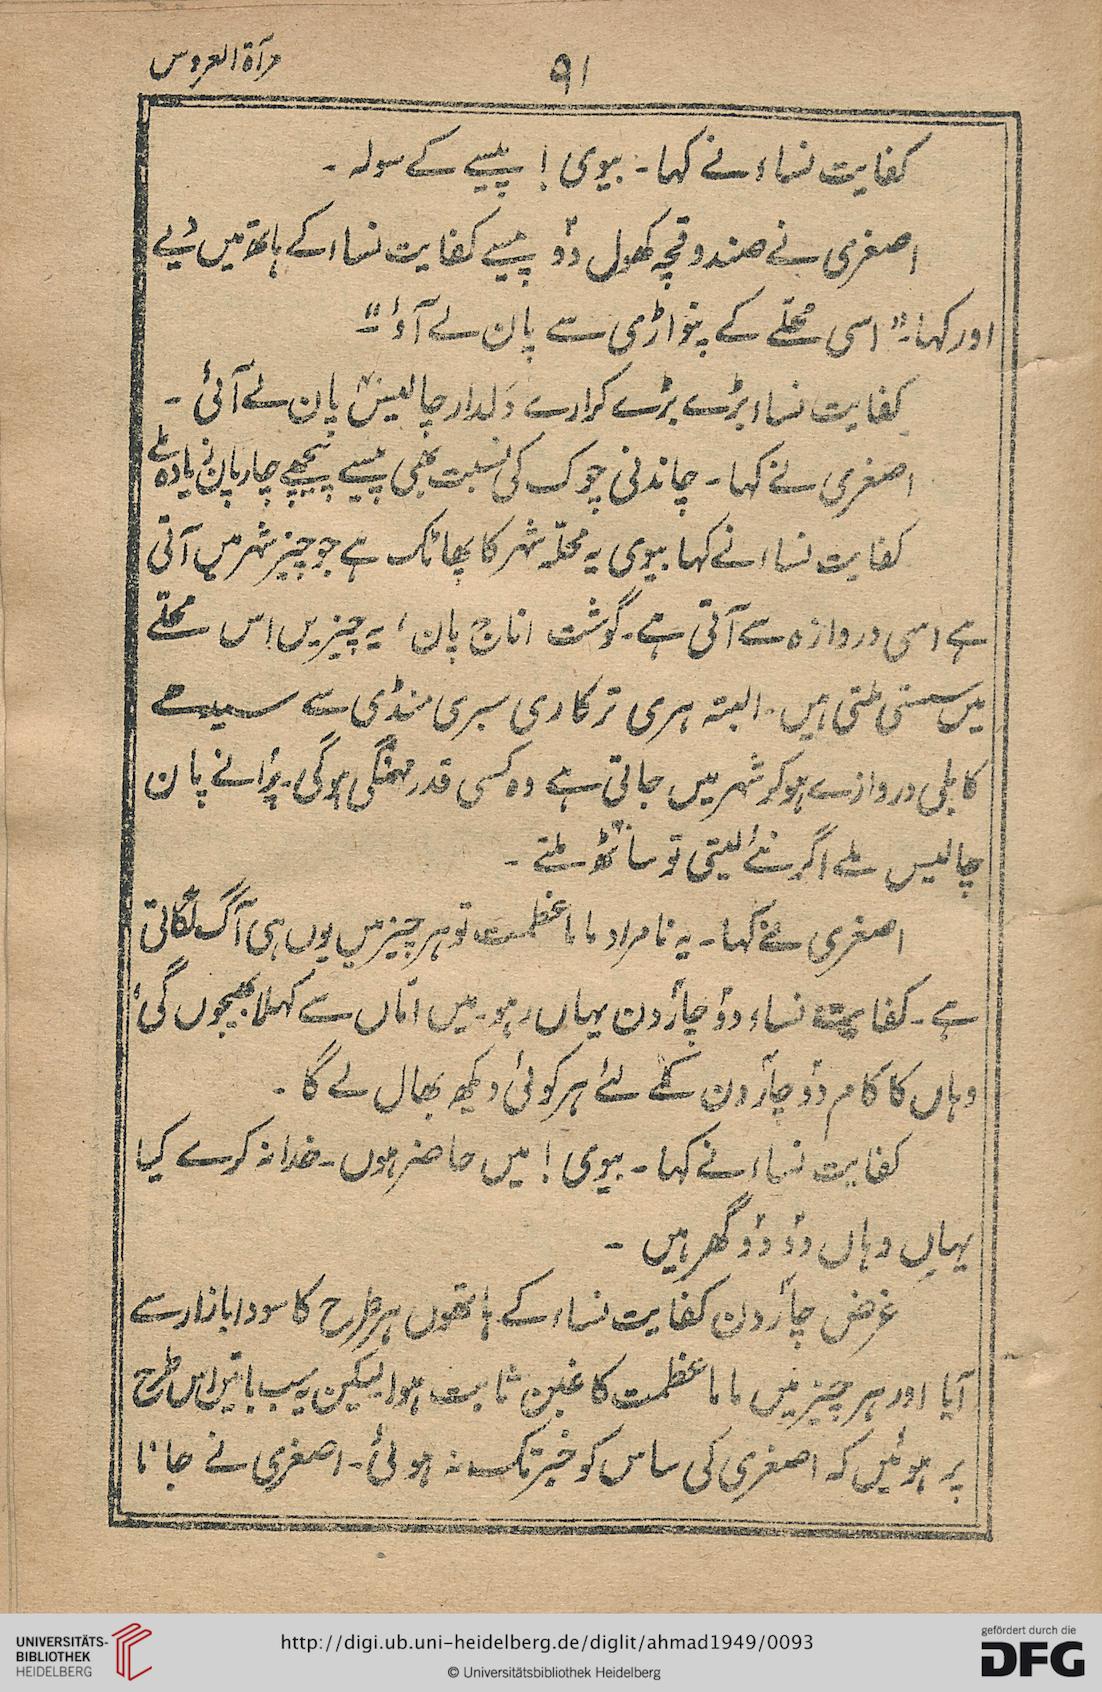 ۹۱
مرآۃ العروس
کفایت نساء نے کہا۔ بیوی! پیسے کے سولہ۔
اصغری نے صندوقچہ کھول دوؔ پیسے کفایت نساء کے ہاتھ میں دیے
اور کہا۔" اسی محلّے کے پنواڑی سے پان لے آؤ۔"
کفایت نساء بڑے بڑے کرارے دَلدار چالیسؔ پان لے آئی۔
اصغری نے کہا۔ چاندنی چوک کی نسبت بھی پیسے پیچھے چار پان زیادہ ملے
کفایت نساء نے کہا بیوی یہ محلّہ شہر کا پھاٹک ہے جو چیز شہر میں آتی
ہے اسی دروازہ سے آتی ہے۔ گوشت اناج پان، یہ چیزیں اِس محلّے
میں سستی ملتی ہیں۔ البتہ ہری ترکاری سبزی منڈی سے سیدھے
کابلی دروازے ہو کر شہر میں جاتی ہے وہ کسی قدر مہنگی ہوگی۔ پُرانے پان
چالیس ملے اگر نئے لیتی تو ساٹھ ملتے۔
اصغری نے کہا۔ یہ نامراد ماما عظمت تو ہر چیز میں یوں ہی آگ لگاتی
ہے۔ کفایت نساء دوؔ چارؔ دن یہاں رہو۔ میں امّاں سے کہلا بھیجوں گی،
وہاں کا کام دوؔ چارؔ دن کے لئے ہر کوئی دیکھ بھال لے گا۔
کفایت نساء نے کہا۔ بیوی! میں حاضر ہوں۔ خدا نہ کرے کیا
یہاں وہاں دوؔ دوؔ گھر ہیں۔
غرض چارؔ دن کفایت نساء کے ہاتھوں ہر طرح کا سودا بازار سے
آیا اور ہر چیز میں ماما عظمت کا غبن ثابت ہوا لیکن یہ سب باتیں اِس طرح
پر ہوئیں کہ اصغری کی ساس کو خبر تک نہ ہوئی۔ اصغری نے جانا
UNIVERSITÄTS-
BIBLIOTHEK
HEIDELBERG
http://digi.ub.uni-heidelberg.de/diglit/ahmad1949/0093
© Universitätsbibliothek Heidelberg
gefördert durch die
DFG